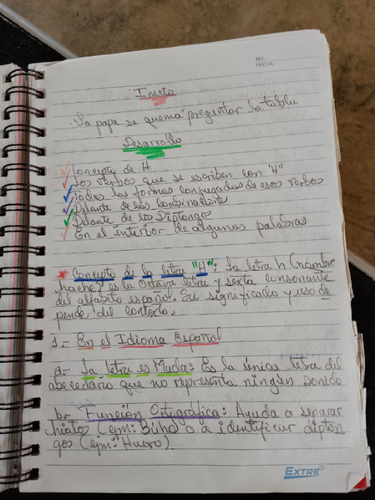 Inicio
. La papa se quema preguntar la tabla
Desarrollo
✓ Concepto de H
✓ Los verbos que se escriben con "H"
✓ Todas las formas conjugadas de esos verbos
✓ Delante de las combinaciones
✓ Delante de los Diptongo
✓ En el interior de algunas palabras
* Concepto de la letra "H". La letra h (nombre
hache) es la Octava letra y sexta consonante
del alfabeto español. Su significado y uso de
pende del contexto.
1.- En el Idioma Español
a- La letra es Muda: Es la única letra del
abecedario que no representa ningún sonido
b- Función Ortográfica: Ayuda a separar
hiatos (ejm: Búho) o a identificar dipton
gos (ejm: Huevo).
EXTRE